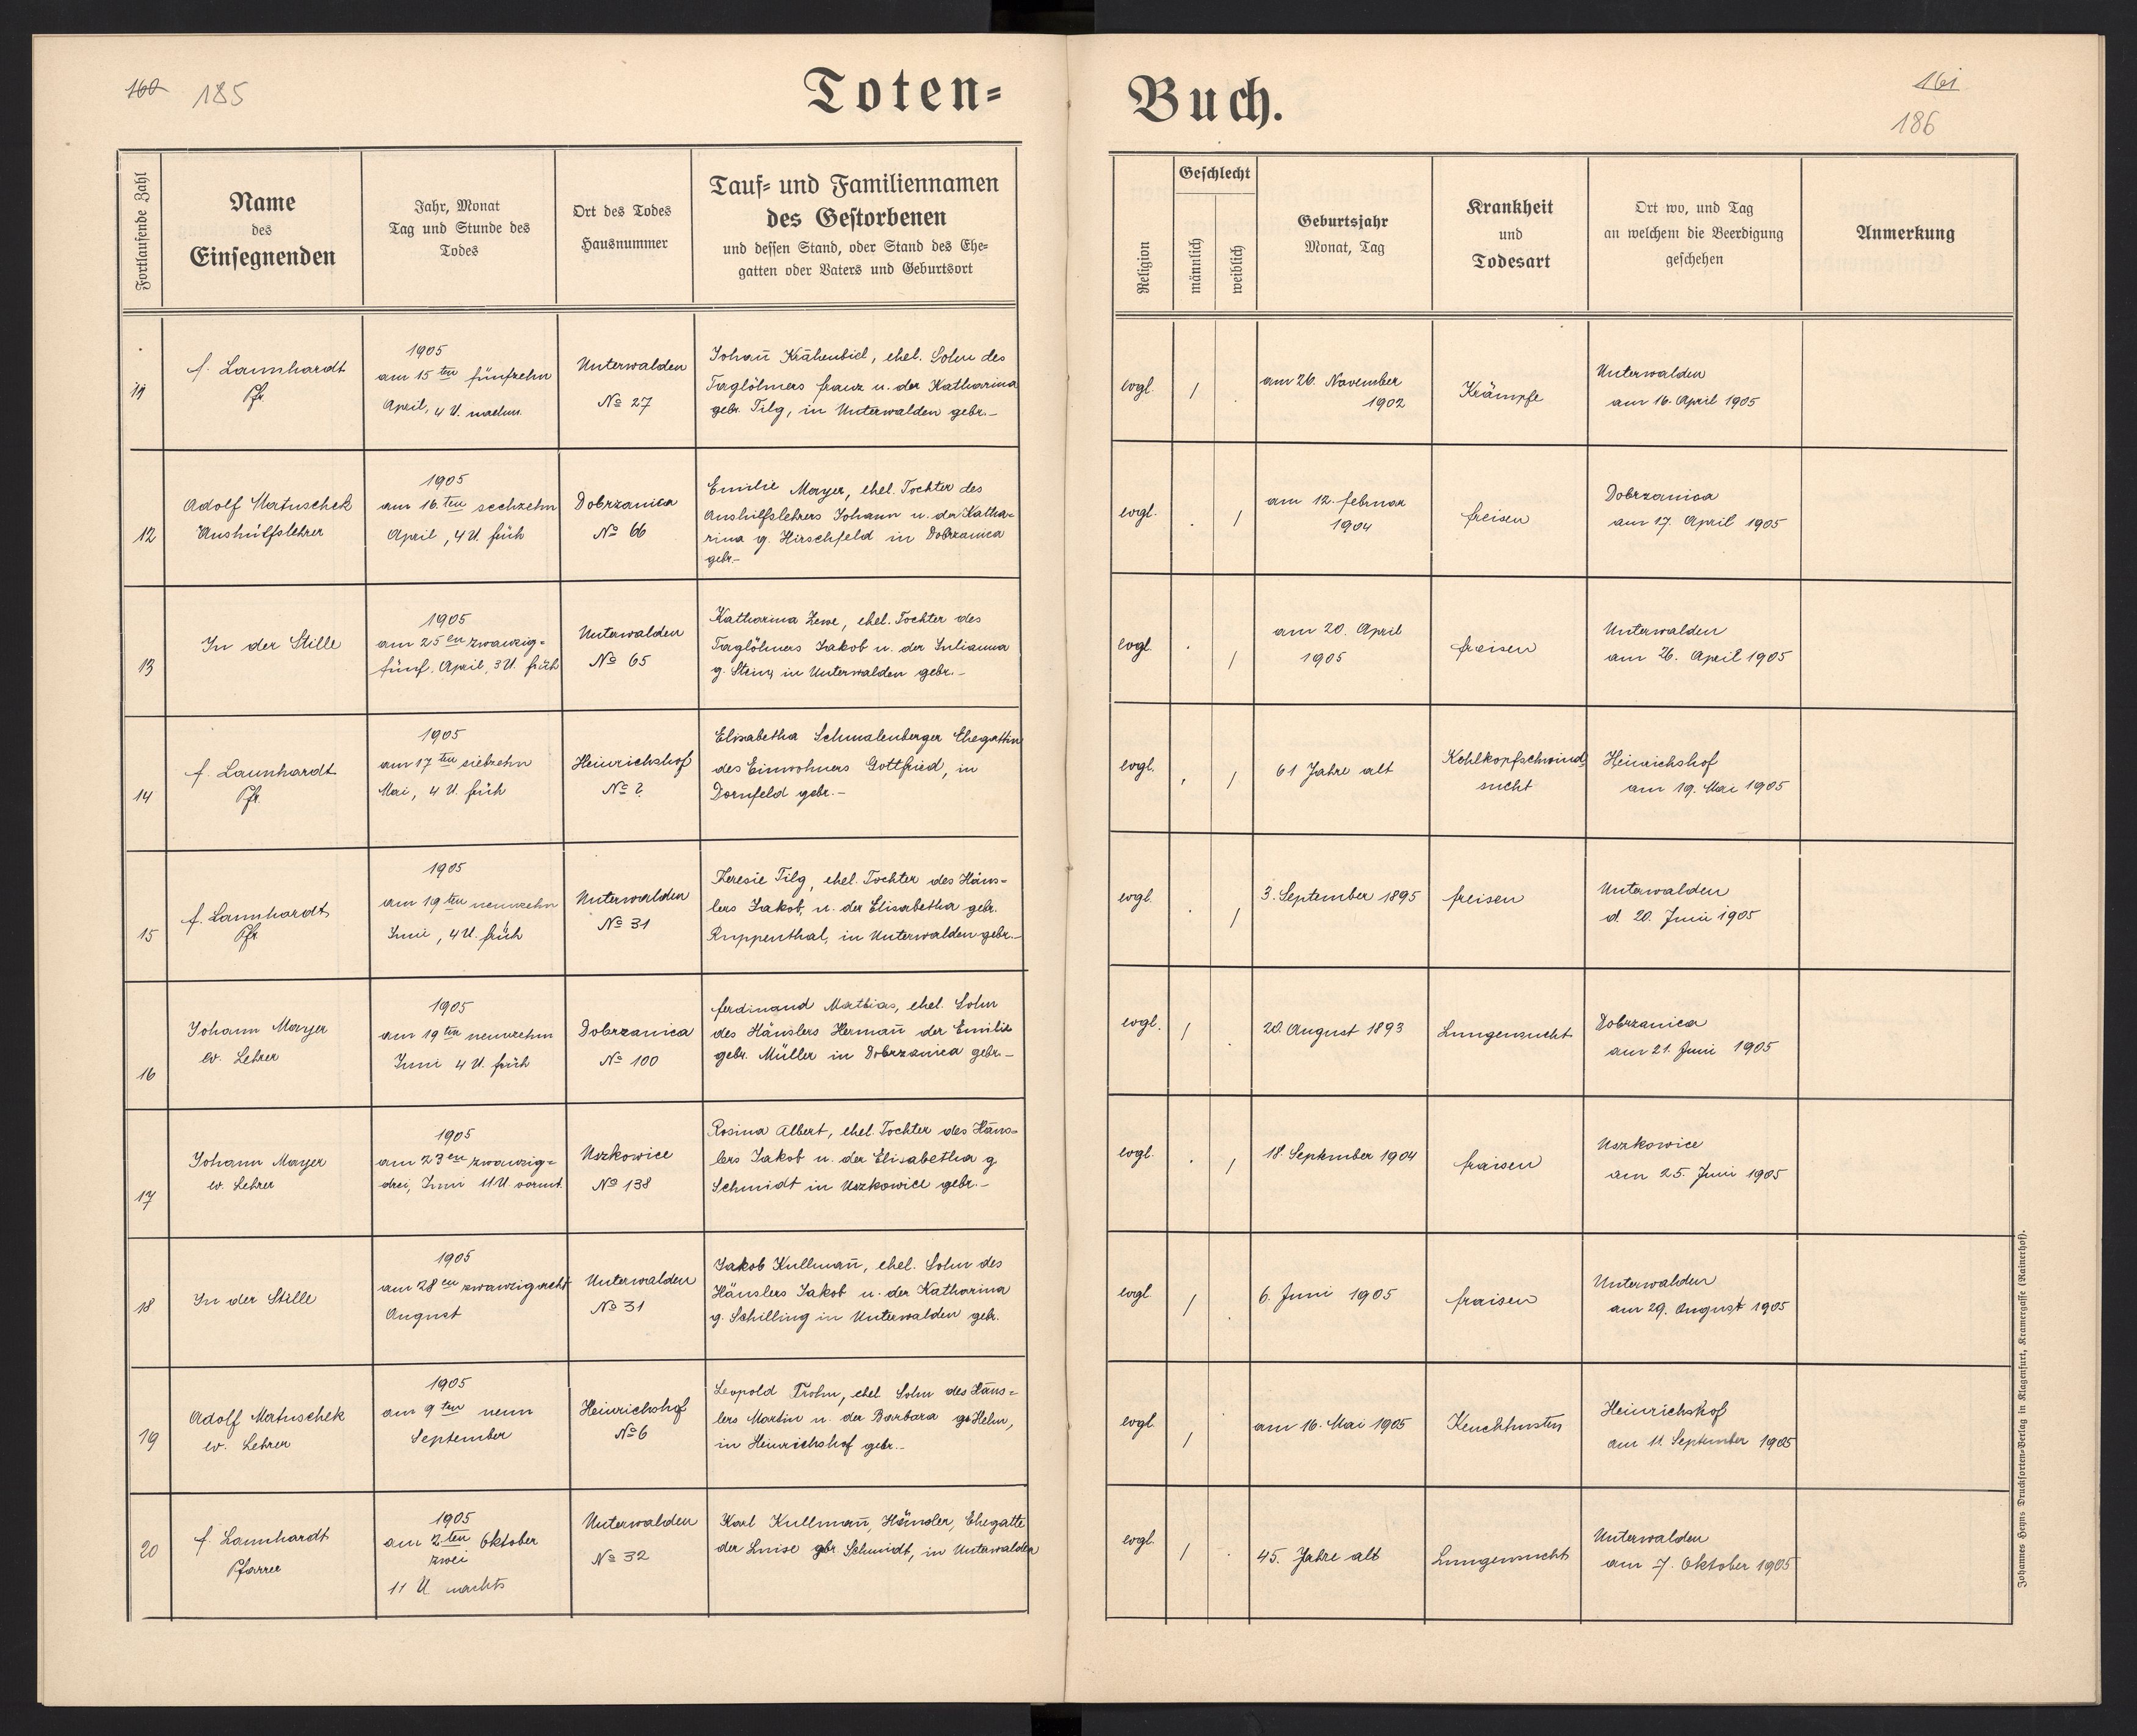 160 185
Toten=
Buch.
161
186
Fortlaufende Zahl
Name
des
Einsegnenden
Jahr, Monat
Tag und Stunde des
Todes
Ort des Todes
Hausnummer
Tauf= und Familiennamen
des Gestorbenen
und dessen Stand, oder Stand des Ehe=
gatten oder Vaters und Geburtsort
Religion
Geschlecht
männlich
weiblich
Geburtsjahr
Monat, Tag
Krankheit
und
Todesart
Ort wo, und Tag
an welchem die Beerdigung
geschehen
Anmerkung
f. Launhardt
Pfr.
1905
am 15ten fünfzehn
April, 4 U. nachm.
Unterwalden
No 27
Johañ Krähenbiel, ehel. Sohn des
Taglöhners Franz u. der Katharina
gebr. Tilg, in Unterwalden gebr.-
evgl. 1 .
am 26. November
1902
Krämpfe
Unterwalden
am 16. April 1905
12
Adolf Matuschek
Aushülfslehrer
1905
am 16ten sechzehn
April, 4 U. früh
Dobrzanica
No 66
Emilie Mayer, ehel. Tochter des
Aushilfslehrers Johann u. der Katha-
rina g. Hirschfeld in Dobrzanica
gebr.-
evgl. . 1
am 12. Februar
1904
freisen
Dobrzanica
am 17. April 1905
13
In der Stille
1905
am 25en zwanzig-
fünf. April, 3 U. früh
Unterwalden
No 65
Katharina Zewe, ehel. Tochter des
Taglöhners Jakob u. der Julianna
g. Stein, in Unterwalden gebr.-
evgl. . 1
am 20. April
1905
freisen
Unterwalden
am 26. April 1905
14
f. Launhardt
Pfr.
1905
am 17ten siebzehn
Mai, 4 U. früh
Heinrichshof
No 2
Elisabetha Schmalenberger Ehegattin
des Einwohners Gottfried, in
Dornfeld gebr.-
evgl. . 1
61 Jahre alt
Kehlkopfschwind-
sucht
Heinrichshof
am 19. Mai 1905
15
f. Launhardt
Pfr.
1905
am 19ten neunzehn
Juni, 4 U. früh
Unterwalden
No 31
Theresie Tilg, ehel. Tochter des Häus-
lers Jakob, u. der Elisabetha gebr.
Ruppenthal, in Unterwalden gebr.-
evgl. . 1
3. September 1895
freisen
Unterwalden
d. 20. Juni 1905
16
Johann Mayer
ev. Lehrer
1905
am 19ten neunzehn
Juni 4 U. früh
Dobrzanica
No 100
Ferdinand Mathias, ehel. Sohn
des Häuslers Hermañ der Emilie
gebr. Müller in Dobrzanica gebr.-
evgl. 1 .
20. August 1893
Lungensucht
Dobrzanica
am 21. Juni 1905
17
Johann Mayer
ev. Lehrer
1905
am 23en zwanzig-
drei, Juni 11 U. vormt.
Uszkowice
No 138
Rosina Albert, ehel. Tochter des Häus-
lers Jakob u. der Elisabetha g
Schmidt in Uszkowice gebr.-
evgl. . 1
18. September 1904
fraisen
Uszkowice
am 25. Juni 1905
18
In der Stille
1905
am 28en zwanzigacht
August
Unterwalden
No 31
Jakob Kullmañ, ehel. Sohn des
Häuslers Jakob u. der Katharina
g. Schilling in Unterwalden gebr.
evgl. 1 .
6. Juni 1905
fraisen
Unterwalden
am 29. August 1905
19
Adolf Matuschek
ev. Lehrer
1905
am 9ten neun
September
Heinrichshof
No 6
Leopold Frohn, ehel. Sohn des Häus-
lers Martin u. der Barbara g. Helm,
in Heinrichshof gebr.-
evgl. 1 .
am 16. Mai 1905
Keuchhusten
Heinrichshof
am 11. September 1905
20
f. Launhardt
Pfarrer
1905
am 2.ten Oktober
zwei
11 U nachts
Unterwalden
No 32
Karl Kullmañ, Häusler, Ehegatte
der Luise gbr. Schmidt, in Unterwalden
evgl. 1 .
45. Jahre alt
Lungensucht
Unterwalden
am 7. Oktober 1905
Johannes Heyns Drucksorten=Verlag in Klagenfurt, Kramergasse (Rainerhof).